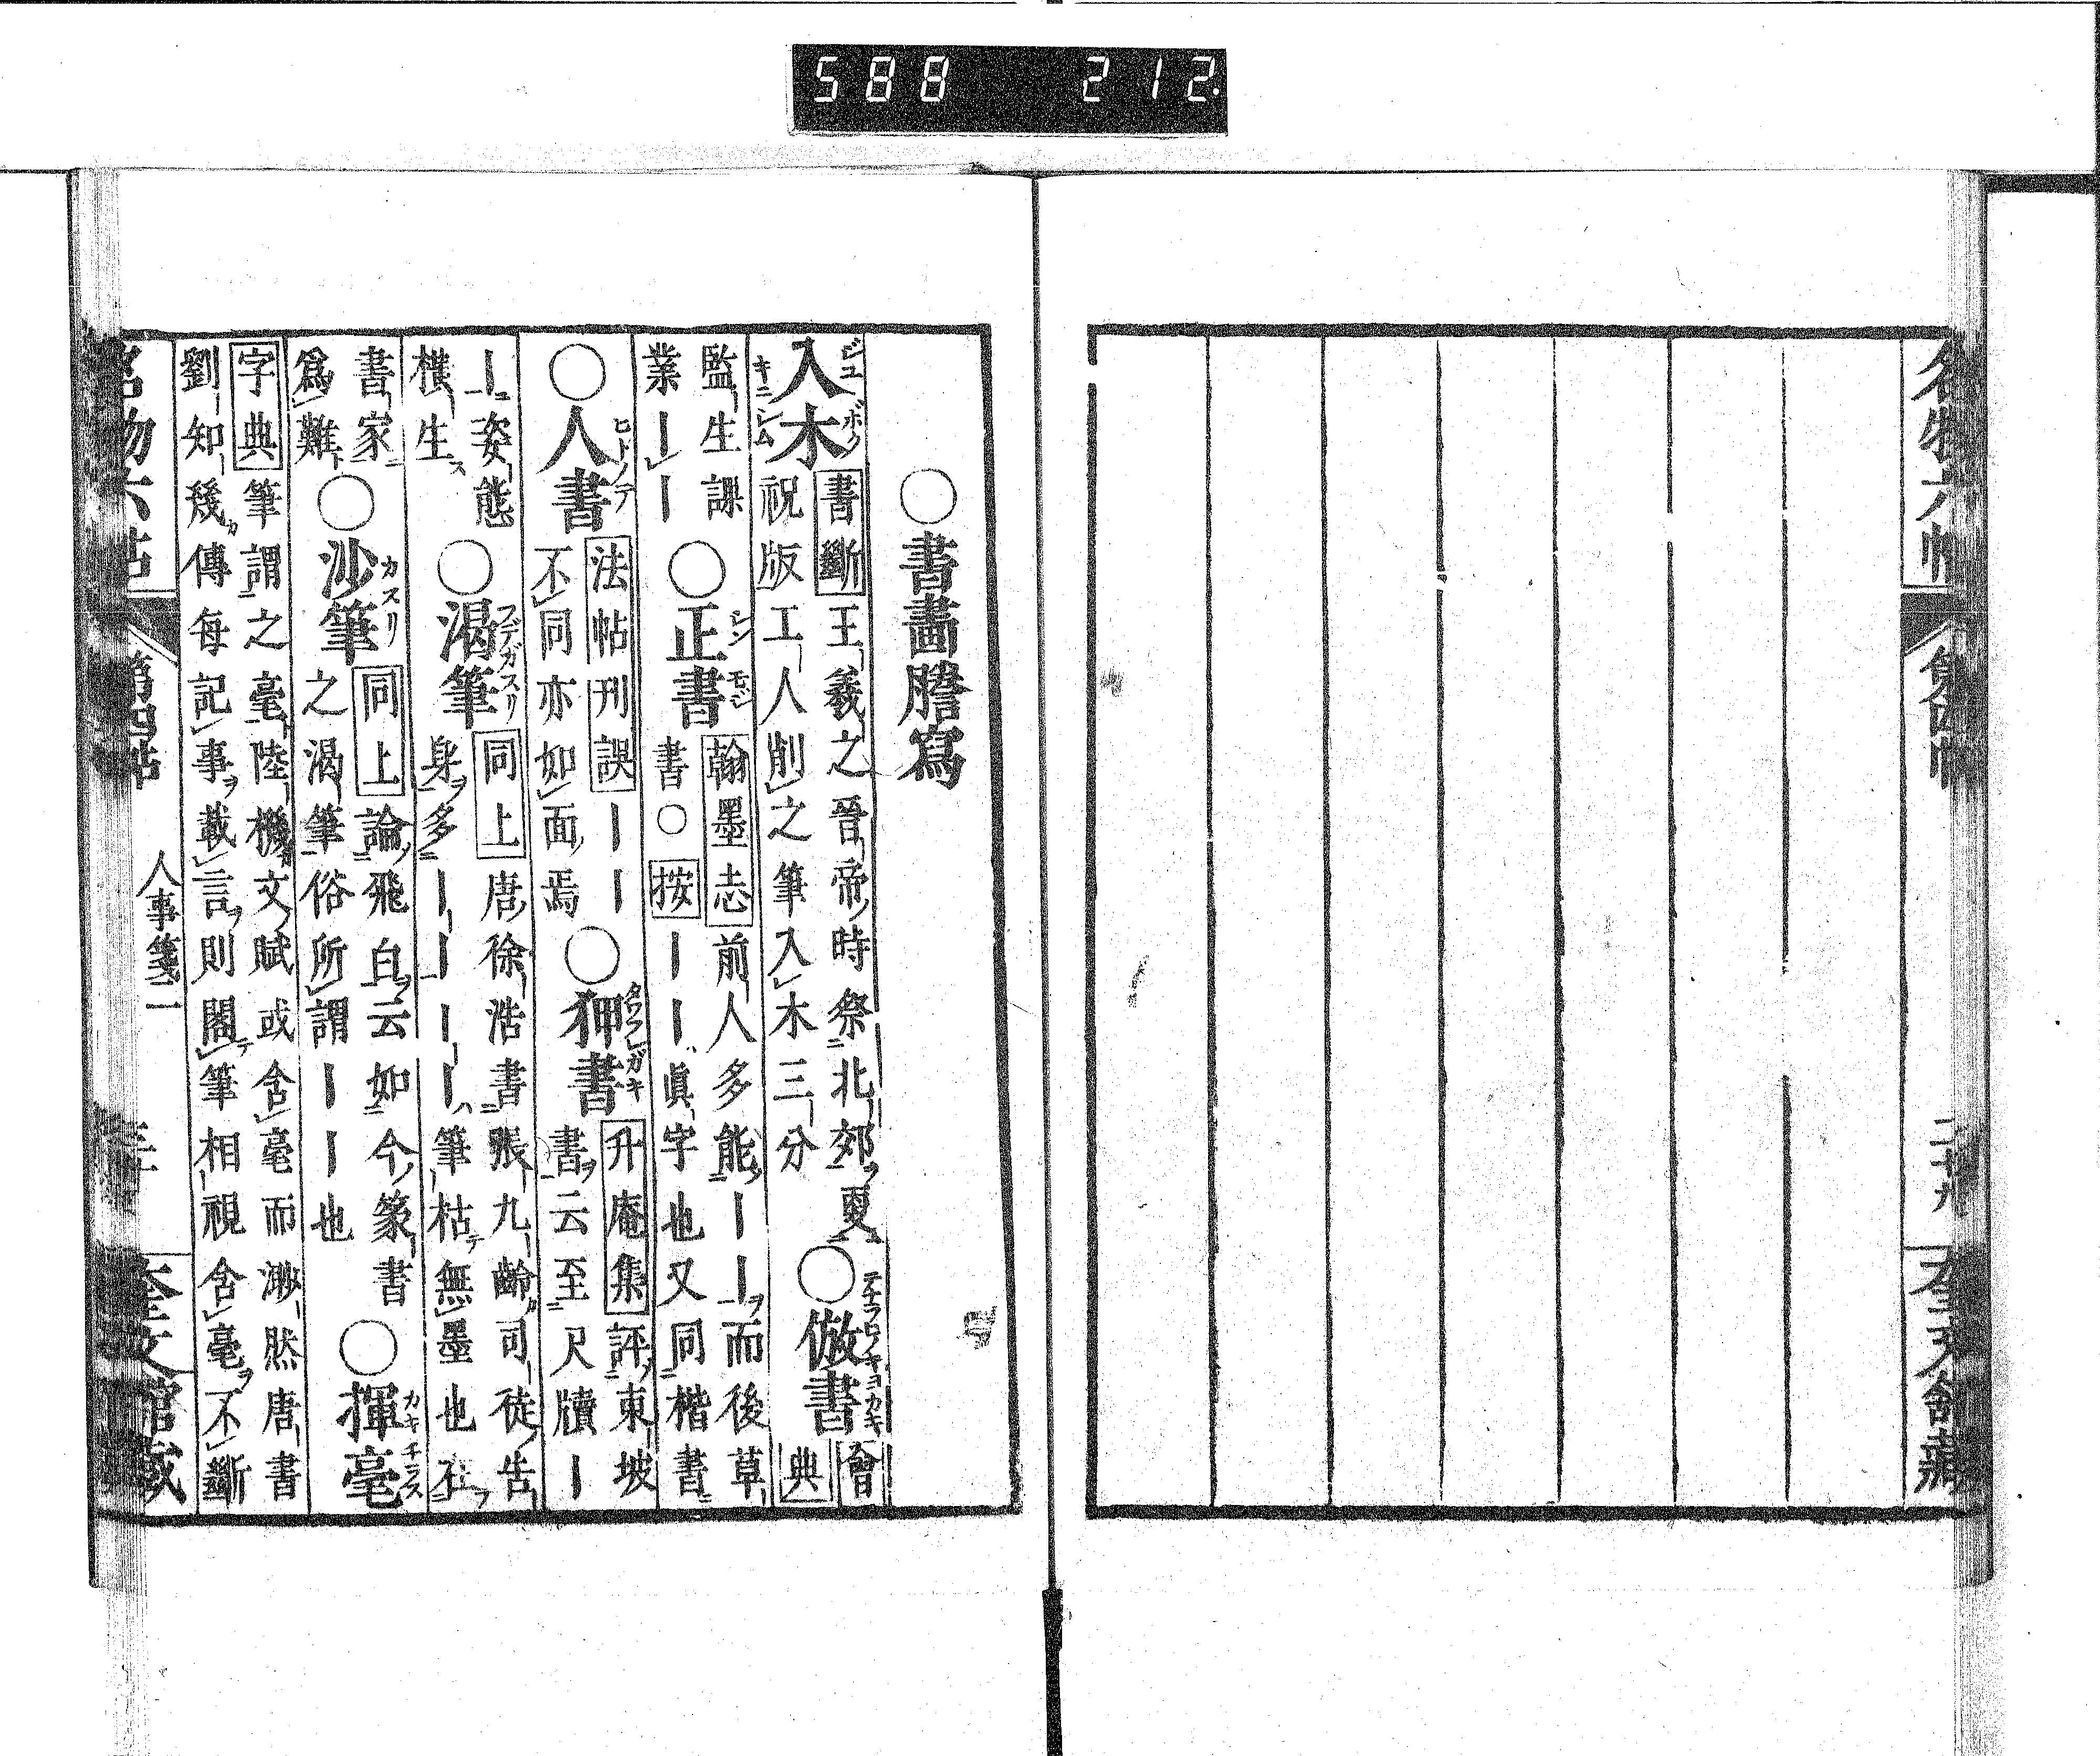 588 212.
名物六帖
第四帖
二十九
奎文館藏
○書畫謄寫
入木 ジユボク キニシム 書斷 王羲之晉帝ノ時祭北郊ヲ更
祝版工人削之筆入木三分 ○倣書 テナラヒノキヨカキ 會典
監生課
業丨丨 ○正書 シンモジ 翰墨志 前人多能丨丨ヲ而後草
書○按丨丨眞字也又同楷書
○人書 ヒトノテ 法帖刊誤 丨丨
不同亦如面焉 ○狎書 タワフレガキ 升庵集 評東坡
書ヲ云至尺牘丨
丨姿態
横生ス ○渴筆 フデガスリ 同上 唐徐浩書張九齡司徒告
身ヲ多丨丨丨丨ハ筆枯テ無墨也在
書家
爲難 ○沙筆 カスリ 同上 論飛白ヲ云如今ノ篆書
之渴筆俗所謂丨丨也 ○揮毫 カキチラス
字典 筆謂之毫陸機文ノ賦或含毫而渺然唐書
劉知幾カ傳每記事ヲ載言ヲ則閣筆相視含毫ヲ不斷
名物六帖
第四帖
人事箋二
三十
奎文館藏